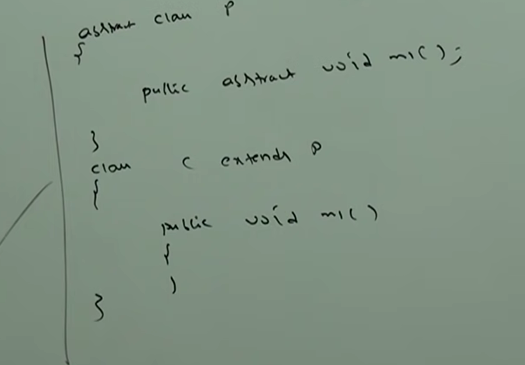 abstract class P
{
public abstract void m1();
}
class C extends P
{
public void m1()
{
}
}